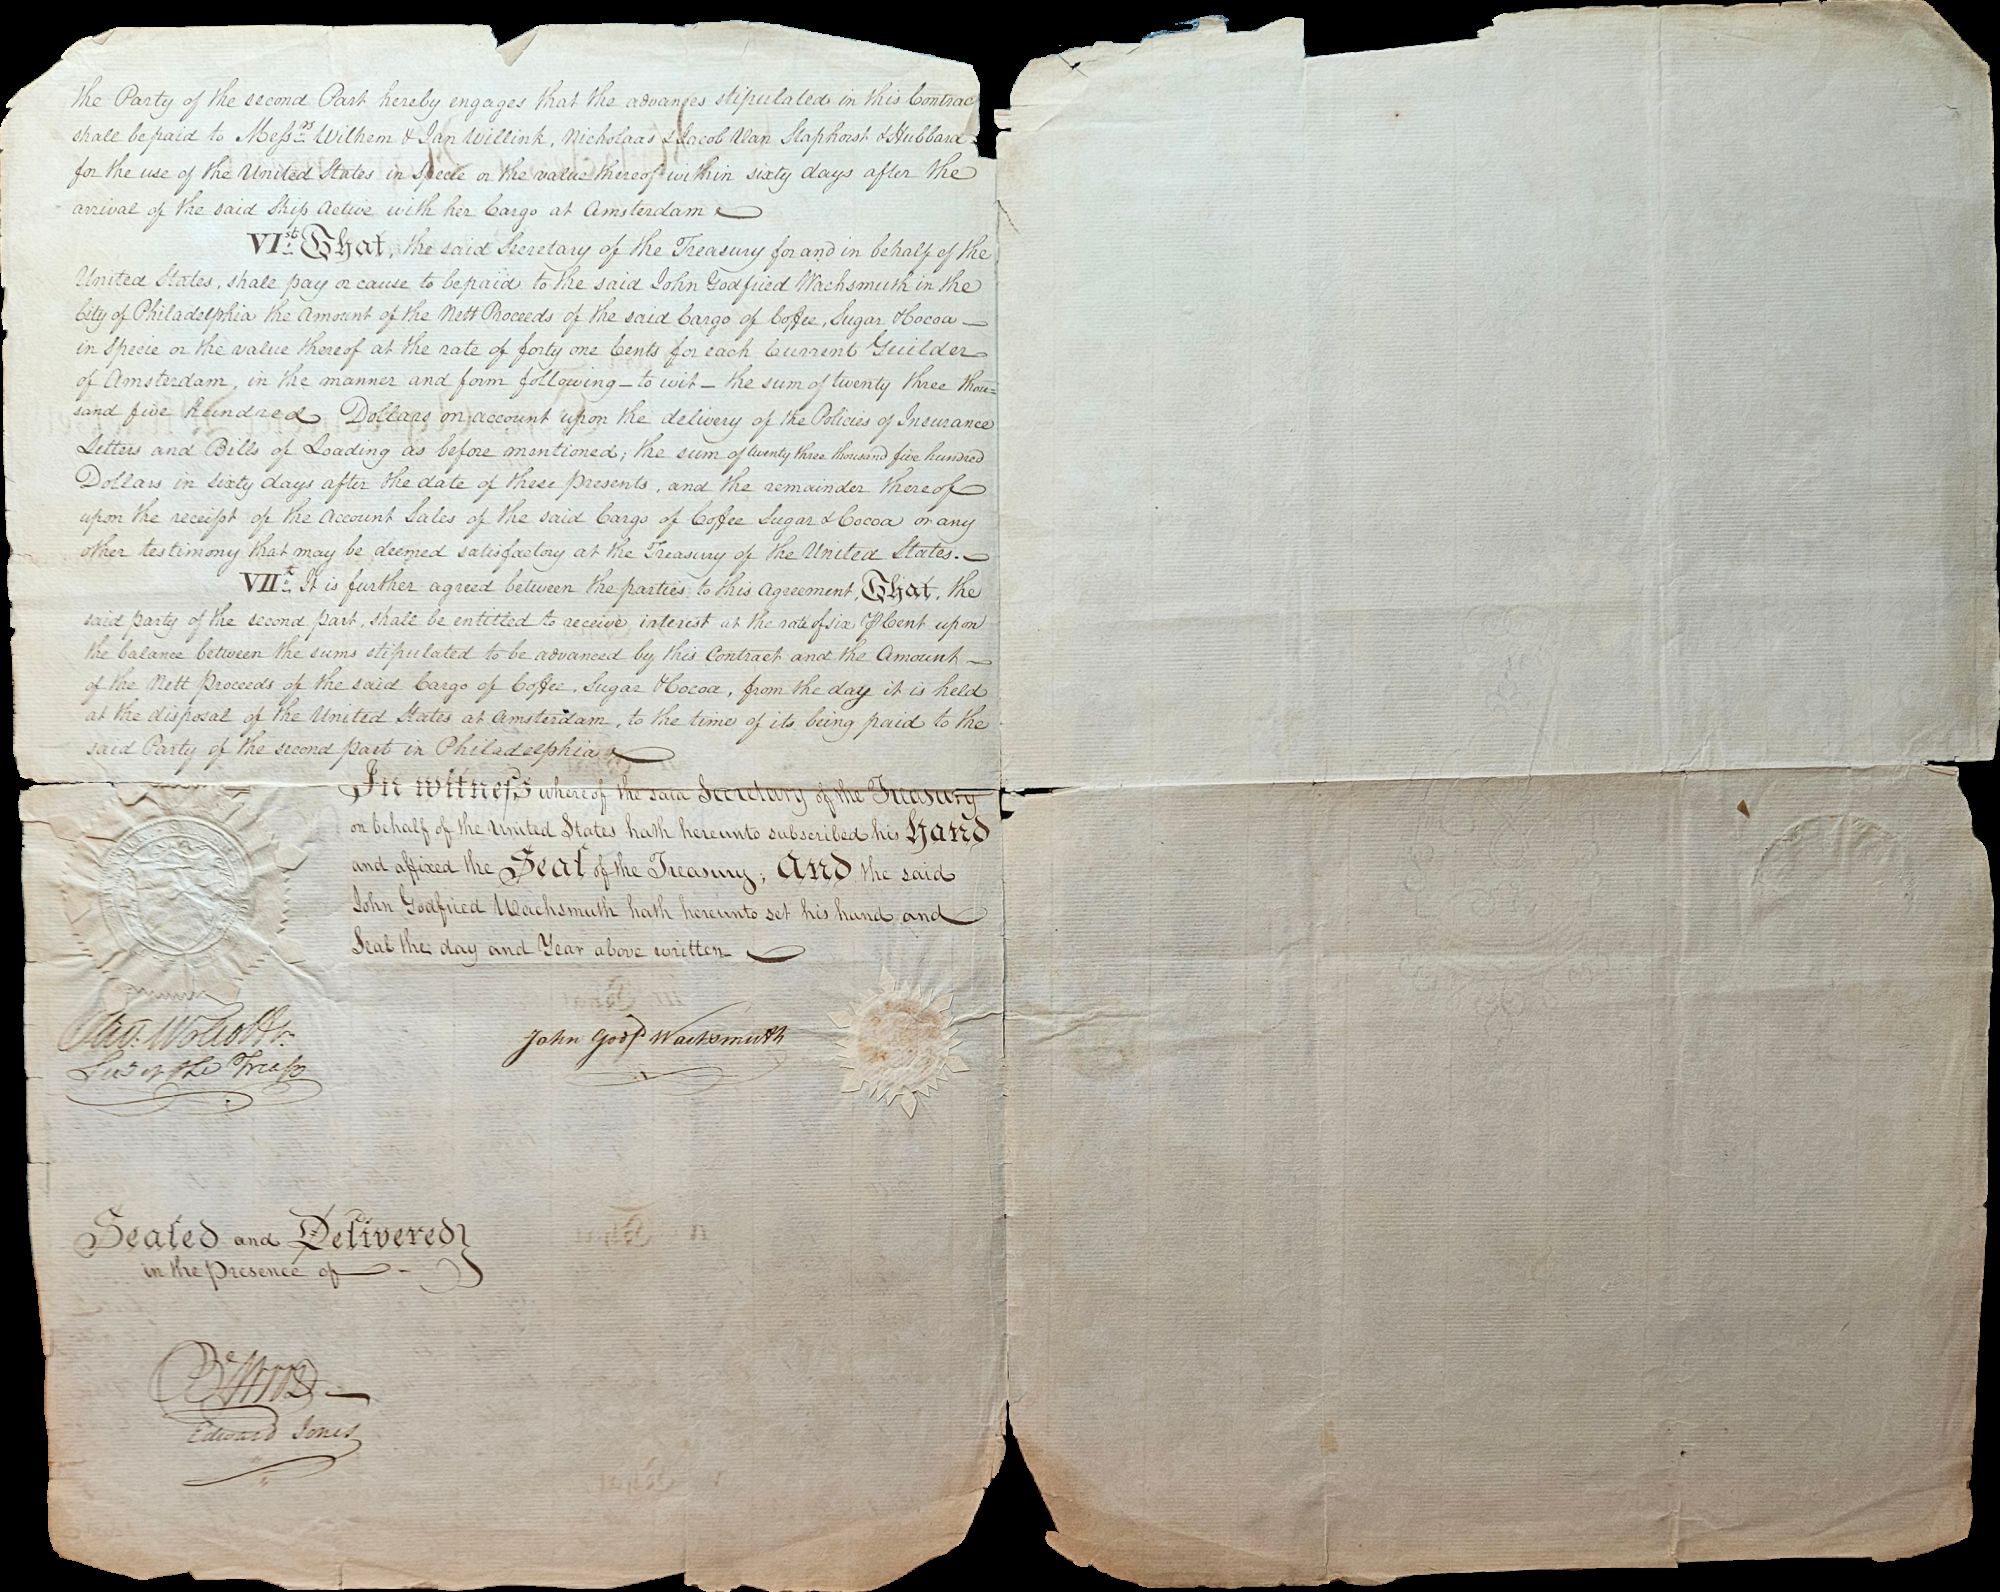 the Party of the second Part hereby engages that the advances stipulated in this Contrac
shall be paid to Messrs Wilhem & Jan Willink, Nicholaas & Jacob Van Staphorst & Hubbard
for the use of the United States in Specie or the value thereof within sixty days after the
arrival of the said Ship Active with her Cargo at Amsterdam
VIst. That, the said Secretary of the Treasury for and in behalf of the
United States, shall pay or cause to be paid to the said John Godfried Wachsmuth in the
City of Philadelphia the Amount of the Nett Proceeds of the said Cargo of Coffee, Sugar & Cocoa
in Specie or the value thereof at the rate of forty one Cents for each Current Guilder
of Amsterdam, in the manner and form following – to wit – the sum of twenty three thou=
sand five hundred Dollars on account upon the delivery of the Policies of Insurance
Letters and Bills of Loading as before mentioned; the sum of twenty three thousand five hundred
Dollars in sixty days after the date of these presents, and the remainder thereof
upon the receipt of the Account Sales of the said Cargo of Coffee Sugar & Cocoa or any
other testimony that may be deemed satisfactory at the Treasury of the United States.
VIIt. It is further agreed between the parties to this Agreement, That, the
said party of the second part, shall be entitled to receive interest at the rate of six ⅌ Cent upon
the balance between the sums stipulated to be advanced by this Contract and the Amount
of the Nett Proceeds of the said Cargo of Coffee, Sugar & Cocoa, from the day it is held
at the disposal of the United States at Amsterdam, to the time of its being paid to the
said Party of the second part in Philadelphia
In witness whereof the said Secretary of the Treasury
on behalf of the United States hath hereunto subscribed his Hand
and affixed the Seal of the Treasury; And the said
John Godfried Wachsmuth hath hereunto set his hand and
Seal the day and Year above written
Oliv. Wolcott Jr.
Secy of the Treasy
John Godfd. Wachsmuth
Sealed and Delivered
in the Presence of
Edward Jones